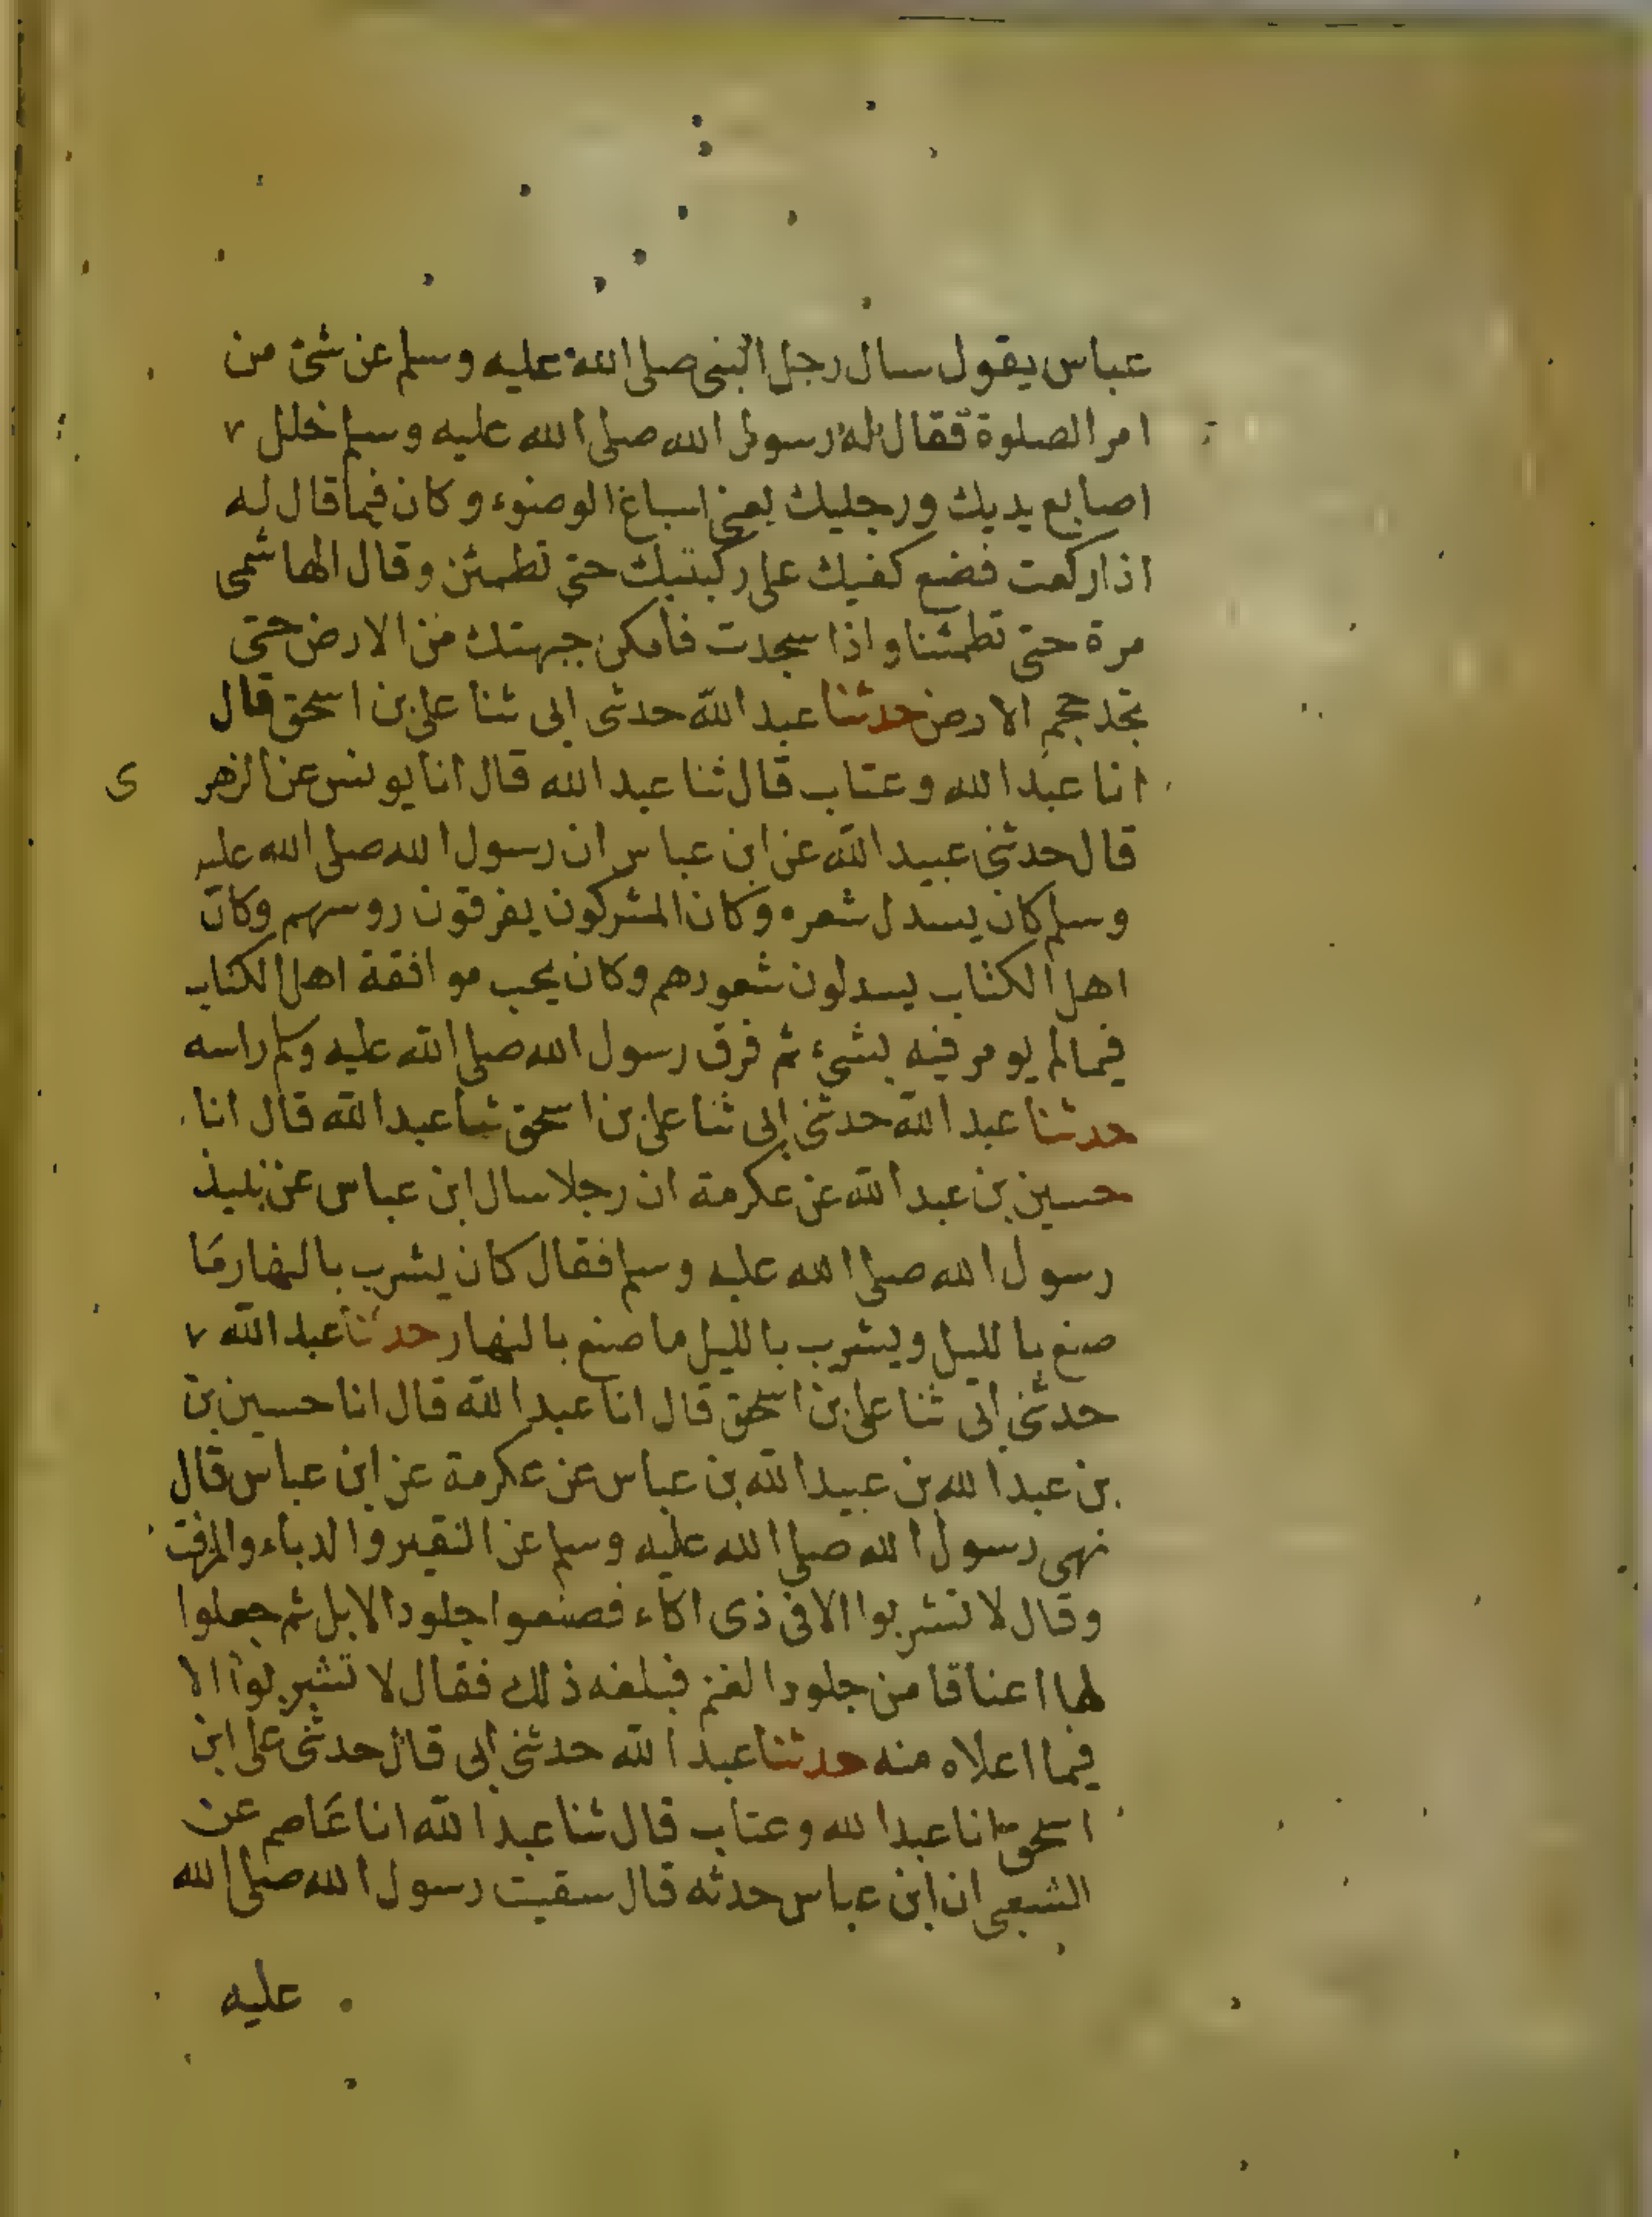 عباس يقول سال رجل النبى صلى الله عليه وسلم عن شئ من
امر الصلوة فقال له رسول الله صلى الله عليه وسلم خلل
اصابع يديك ورجليك يعنى اسباغ الوضوء وكان فيما قال له
اذا ركعت فضع كفيك على ركبتيك حتى تطمئن وقال الهاشمى
مرة حتى تطمئنا واذا سجدت فامكن جبهتك من الارض حتى
تجد حجم الارض حدثنا عبد الله حدثنى ابى ثنا على بن اسحق قال
انا عبد الله وعتاب قال ثنا عبد الله قال انا يونس عن الزهرى
قال حدثنى عبيد الله عن ابن عباس ان رسول الله صلى الله عليه
وسلم كان يسدل شعره وكان المشركون يفرقون روسهم وكان
اهل الكتاب يسدلون شعورهم وكان يحب موافقة اهل الكتاب
فيما لم يومر فيه بشئ ثم فرق رسول الله صلى الله عليه وسلم راسه
حدثنا عبد الله حدثنى ابى ثنا على بن اسحق ثنا عبد الله قال انا
حسين بن عبد الله عن عكرمة ان رجلا سال ابن عباس عن نبيذ
رسول الله صلى الله عليه وسلم فقال كان يشرب بالنهار مَا
صنع بالليل ويشرب بالليل ما صنع بالنهار حدثنا عبد الله
حدثنى ابى ثنا على بن اسحق قال انا عبد الله قال انا حسين بن
بن عبد الله بن عبيد الله بن عباس عن عكرمة عن ابن عباس قال
نهى رسول الله صلى الله عليه وسلم عن النقير والدباء والمزفت
وقال لا تشربوا الا فى ذى اكاء فصنعوا جلود الابل ثم جعلوا
لها اعناقا من جلود الغنم فبلغه ذلك فقال لا تشربوا الا
فيما اعلاه منه حدثنا عبد الله حدثنى ابى قال حدثنى على ابن
اسحق انا عبد الله وعتاب قال ثنا عبد الله انا عَاصم عن
الشعبى ان ابن عباس حدثه قال سقيت رسول الله صلى الله
عليه